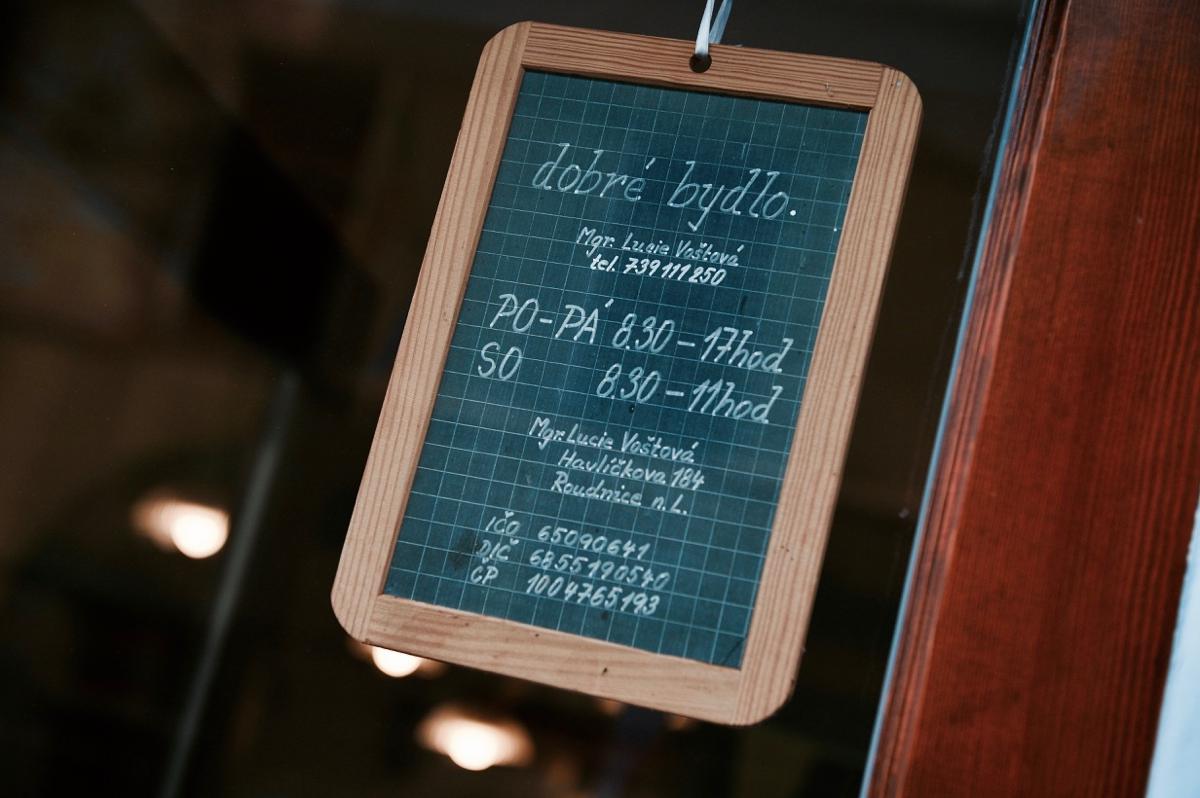 dobré bydlo.
Mgr. Lucie Voštová
tel. 739 111 250
PO-PÁ 8.30 - 17hod
SO 8.30 - 11hod
Mgr. Lucie Voštová
Havlíčkova 184
Roudnice n.L.
IČO 65090641
DIČ 6855190540
ČP 1004765193